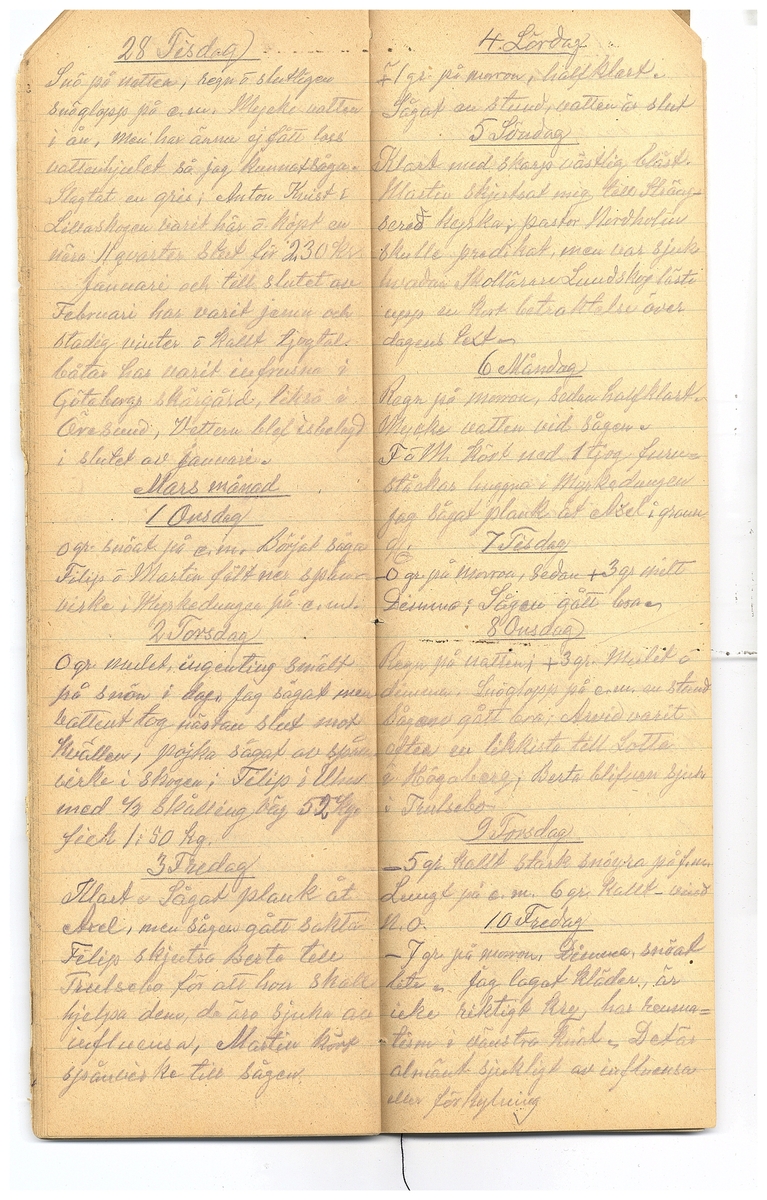 28 Tisdag
Snö på natten, regn ö slutligen
snöglopp på e.m. Mycke vatten
i ån, men har ännu ej fått loss
vattenhjulet så jag kunnat såga.
Slagtat en gris; Anton Kvist i
Lillaskogen varit här ö köpt en
nära 11 quarter stut för 230 Kr.
Januari och till slutet av
Februari har varit jemn och
stadig vinter ö kallt
båtar har varit infrusna i
Göteborgs skärgård, liksö i
Öresund, Vettern blef isbelagd
i slutet av Januari.
Mars månad
1 Onsdag
0 gr. snöat på e.m. Börjat såga
Filip ö Martin fält ner spån-
virke i Myrkedungen på e.m.
2 Torsdag
0 gr. mulet, ingenting smält
på snön i dag. Jag sågat men
vattent tog nästan slut mot
kvällen, pojka sågat av spån
virke i skogen; Filip i
med 1/2 Skålling väg 52 kg.
fick 1:50 kg.
3 Fredag
Klart. Sågat plank åt
Axel, men sågen gått sakta
Filip skjutsa Berta till
Trulsebo för att hon skall
hjelpa dem, de äro sjuka av
influensa, Martin kört
spånvirke till sågen.
4. Lördag
+1 gr. på moron, halfklart.
Sågat en stund, vatten är slut
5 Söndag
Klart med skarp västlig blåst.
Martin skjutsat mig till Sträng-
sered kyrka; pastor Nordholm
skulle predikat, men var sjuk
hvadan Skollärare Lundskog läste
upp en kort betraktelse över
dagens text.
6 Måndag
Regn på moron, sedan halfklart.
Mycke vatten vid sågen.
F ö M. kört ned 1 tjog furu=
stäckar huggna i Myrkedungen
jag sågat plank åt Axel i grann
g.
7 Tisdag
0 gr. på moron, sedan +3 gr. mitt
Dimma; Sågen gått bra.
8 Onsdag
Regn på natten; +3 gr. Mulet o
dimma. Snöglopp på e.m. en stund
Sågen gått bra; Arvid varit
efter en likkista till Lotta
i Högaberg; Berta blifven sjuk
i Trulsebo
9 Torsdag
-5 gr. kallt stark snöyra på f.m.
Lungt på e.m. 6 gr. kallt - vind
N.O.
10 Fredag
-7 gr. på moron, Dimma, snöat
lite. Jag lagat kläder, är
icke riktigt kry, har reuma=
tism i vänstra knät. Det är
almänt sjukligt av influensa
eller förkylning